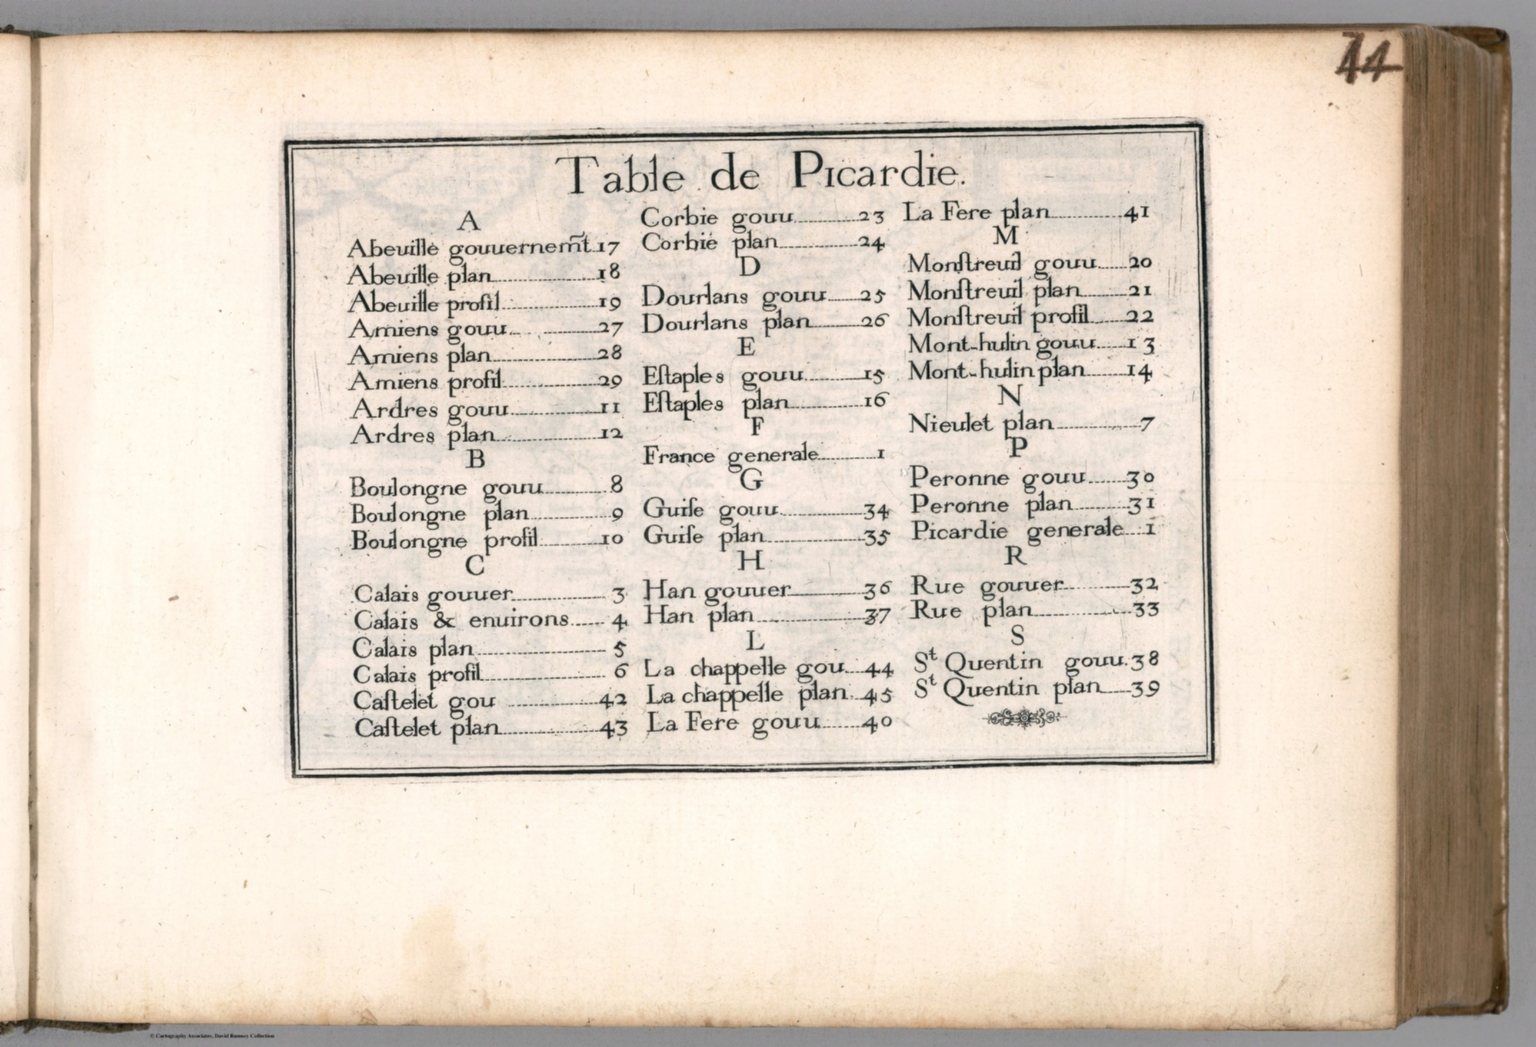 44
Table de Picardie.
A
Abeuille gouuernem̃t 17
Abeuille plan 18
Abeuille profil 19
Amiens gouu 27
Amiens plan 28
Amiens profil 29
Ardres gouu 11
Ardres plan 12
B
Boulongne gouu 8
Boulongne plan 9
Boulongne profil 10
C
Calais gouuer 3
Calais & enuirons 4
Calais plan 5
Calais profil 6
Caſtelet gou 42
Caſtelet plan 43
Corbie gouu 23
Corbie plan 24
D
Dourlans gouu 25
Dourlans plan 26
E
Eſtaples gouu 15
Eſtaples plan 16
F
France generale 1
G
Guiſe gouu 34
Guiſe plan 35
H
Han gouuer 36
Han plan 37
L
La chappelle gou 44
La chappelle plan 45
La Fere gouu 40
La Fere plan 41
M
Monſtreuil gouu 20
Monſtreuil plan 21
Monſtreuil profil 22
Mont-hulin gouu 13
Mont-hulin plan 14
N
Nieulet plan 7
P
Peronne gouu 30
Peronne plan 31
Picardie generale 1
R
Rue gouuer 32
Rue plan 33
S
St Quentin gouu. 38
St Quentin plan 39
© Cartography Associates, David Rumsey Collection